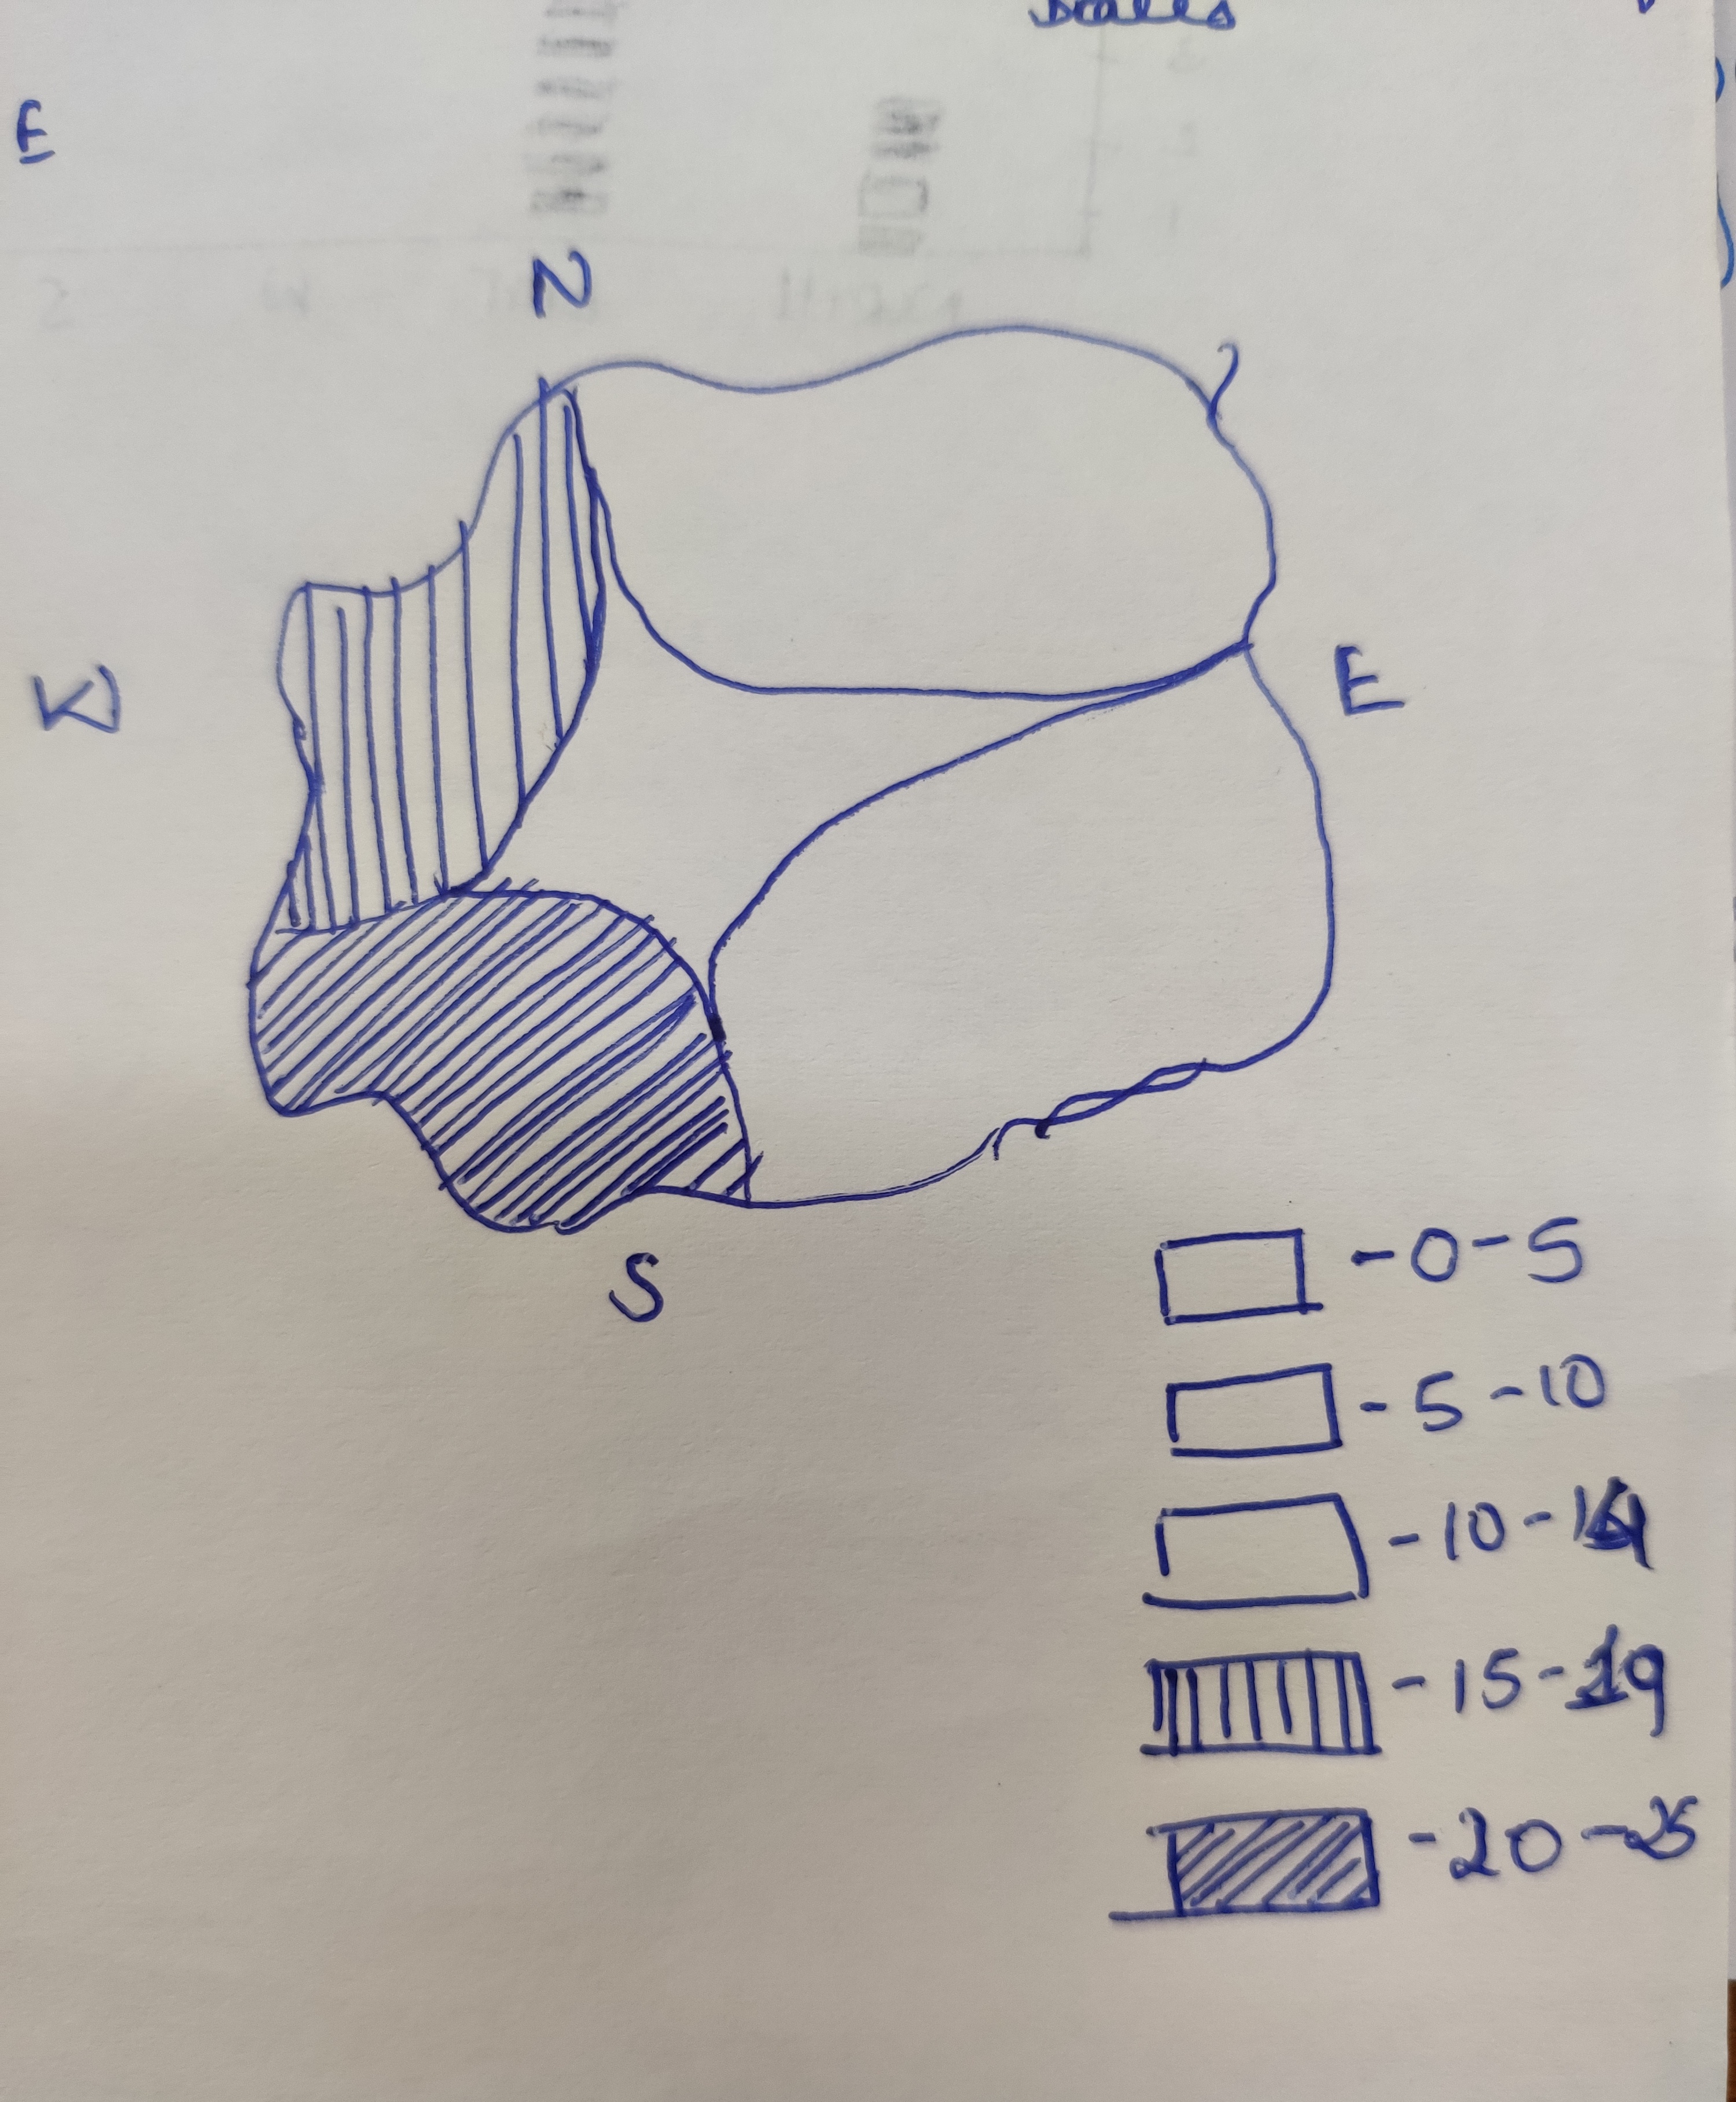 E
N
W
E
S
- 0 - 5
- 5 - 10
- 10 - 14
- 15 - 19
- 20 - 25